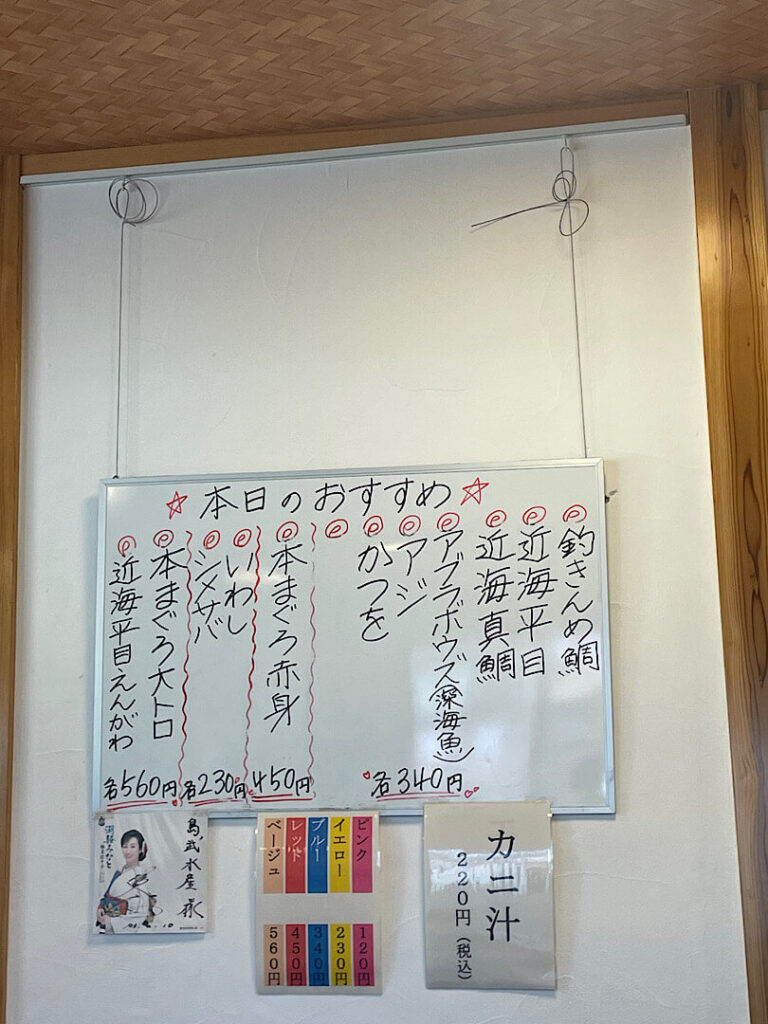 ☆本日のおすすめ☆
釣きんめ鯛
近海平目
近海真鯛
アブラボウズ(深海魚)
アジ
かつを
各340円
本まぐろ赤身
450円
いわし
シメサバ
各230円
本まぐろ大トロ
近海平目えんがわ
各560円
カニ汁
220円(税込)
ピンク 120円
イエロー 230円
ブルー 340円
レッド 450円
ベージュ 560円
水産
みなと